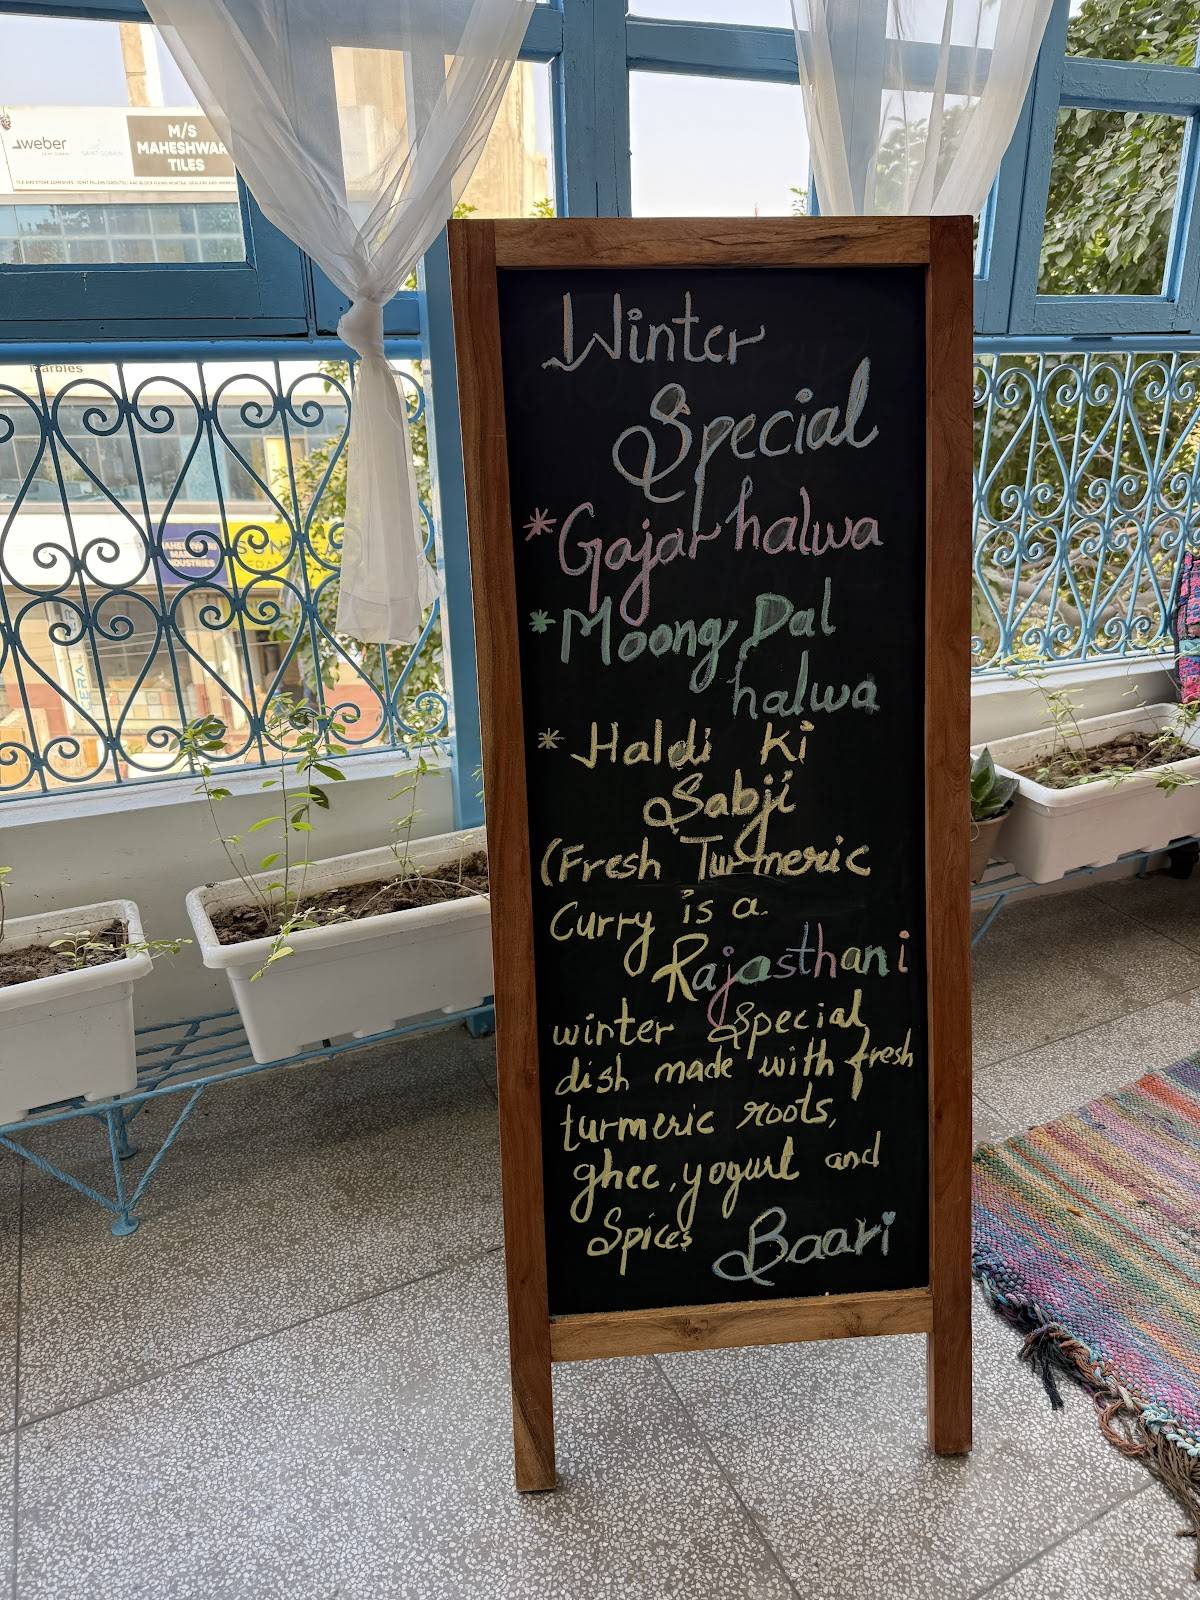 weber
SAINT-GOBAIN
M/S
MAHESHWAR
TILES
Marbles
Winter
Special
* Gajar halwa
* Moong Dal
halwa
* Haldi Ki
Sabji
(Fresh Turmeric
Curry is a
Rajasthani
winter Special
dish made with fresh
turmeric roots,
ghee, yogurt and
Spices
Baari